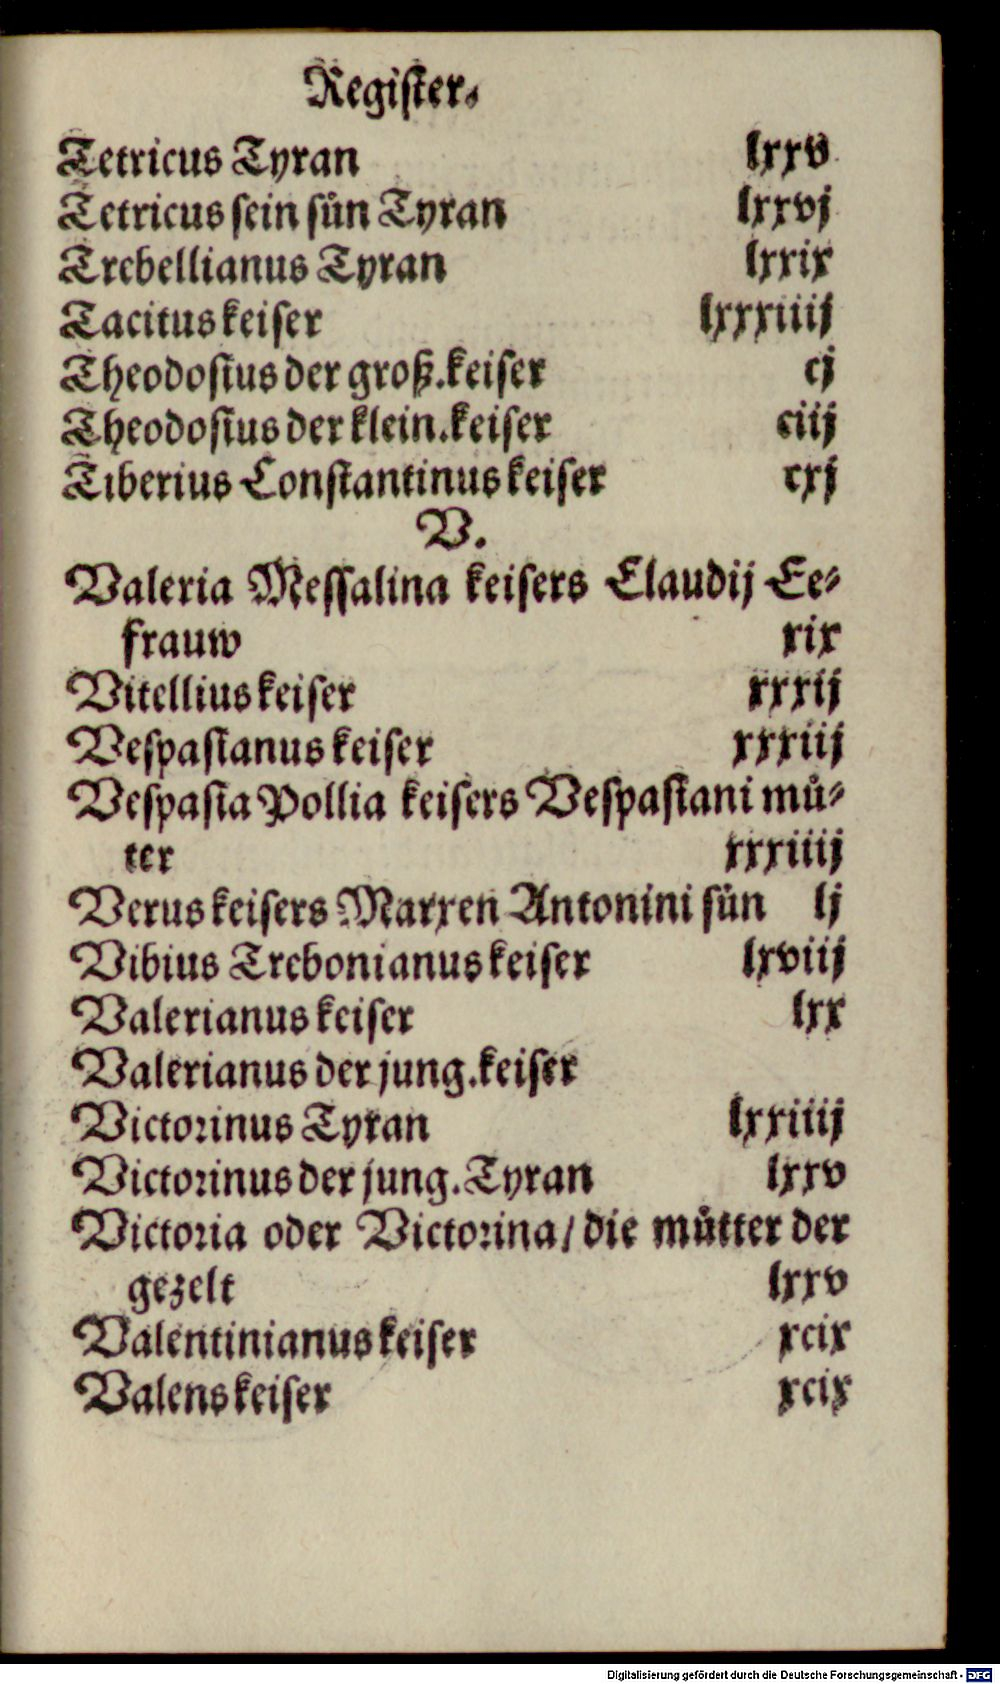 Register.
Tetricus Tyran lxxv
Tetricus sein sün Tyran lxxvj
Trebellianus Tyran lxxix
Tacitus keiser lxxxiiij
Theodosius der groß. keiser cj
Theodosius der klein. keiser ciij
Tiberius Constantinus keiser cxj
V.
Valeria Messalina keisers Claudij Ee-
frauw xix
Vitellius keiser xxxij
Vespasianus keiser xxxiij
Vespasia Pollia keisers Vespasiani mů-
ter xxxiiij
Verus keisers Marxen Antonini sün lj
Vibius Trebonianus keiser lxviij
Valerianus keiser lxx
Valerianus der jung. keiser
Victorinus Tyran lxxiiij
Victorinus der jung. Tyran lxxv
Victoria oder Victorina / die můtter der
gezelt lxxv
Valentinianus keiser xcix
Valens keiser xcix
Digitalisierung gefördert durch die Deutsche Forschungsgemeinschaft - DFG